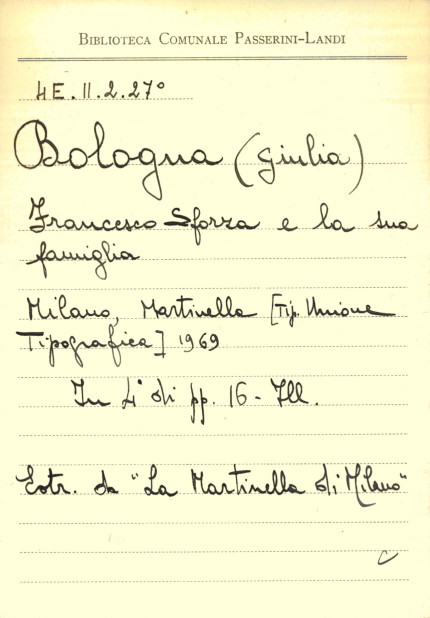 BIBLIOTECA COMUNALE PASSERINI-LANDI
4E.II.2.27°
Bologna (Giulia)
Francesco Sforza e la sua
famiglia
Milano, Martinella [Tip. Unione
Tipografica] 1969
In 4° di pp. 16 - Ill.
Estr. da "La Martinella di Milano"
C